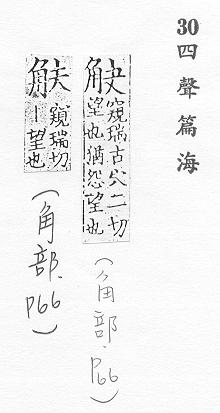 30 四聲篇海
觖 窺瑞古穴二切
望也猶怨望也
(角部.
P66)
䚕 窺瑞切
丨望也
(角部.
P66)